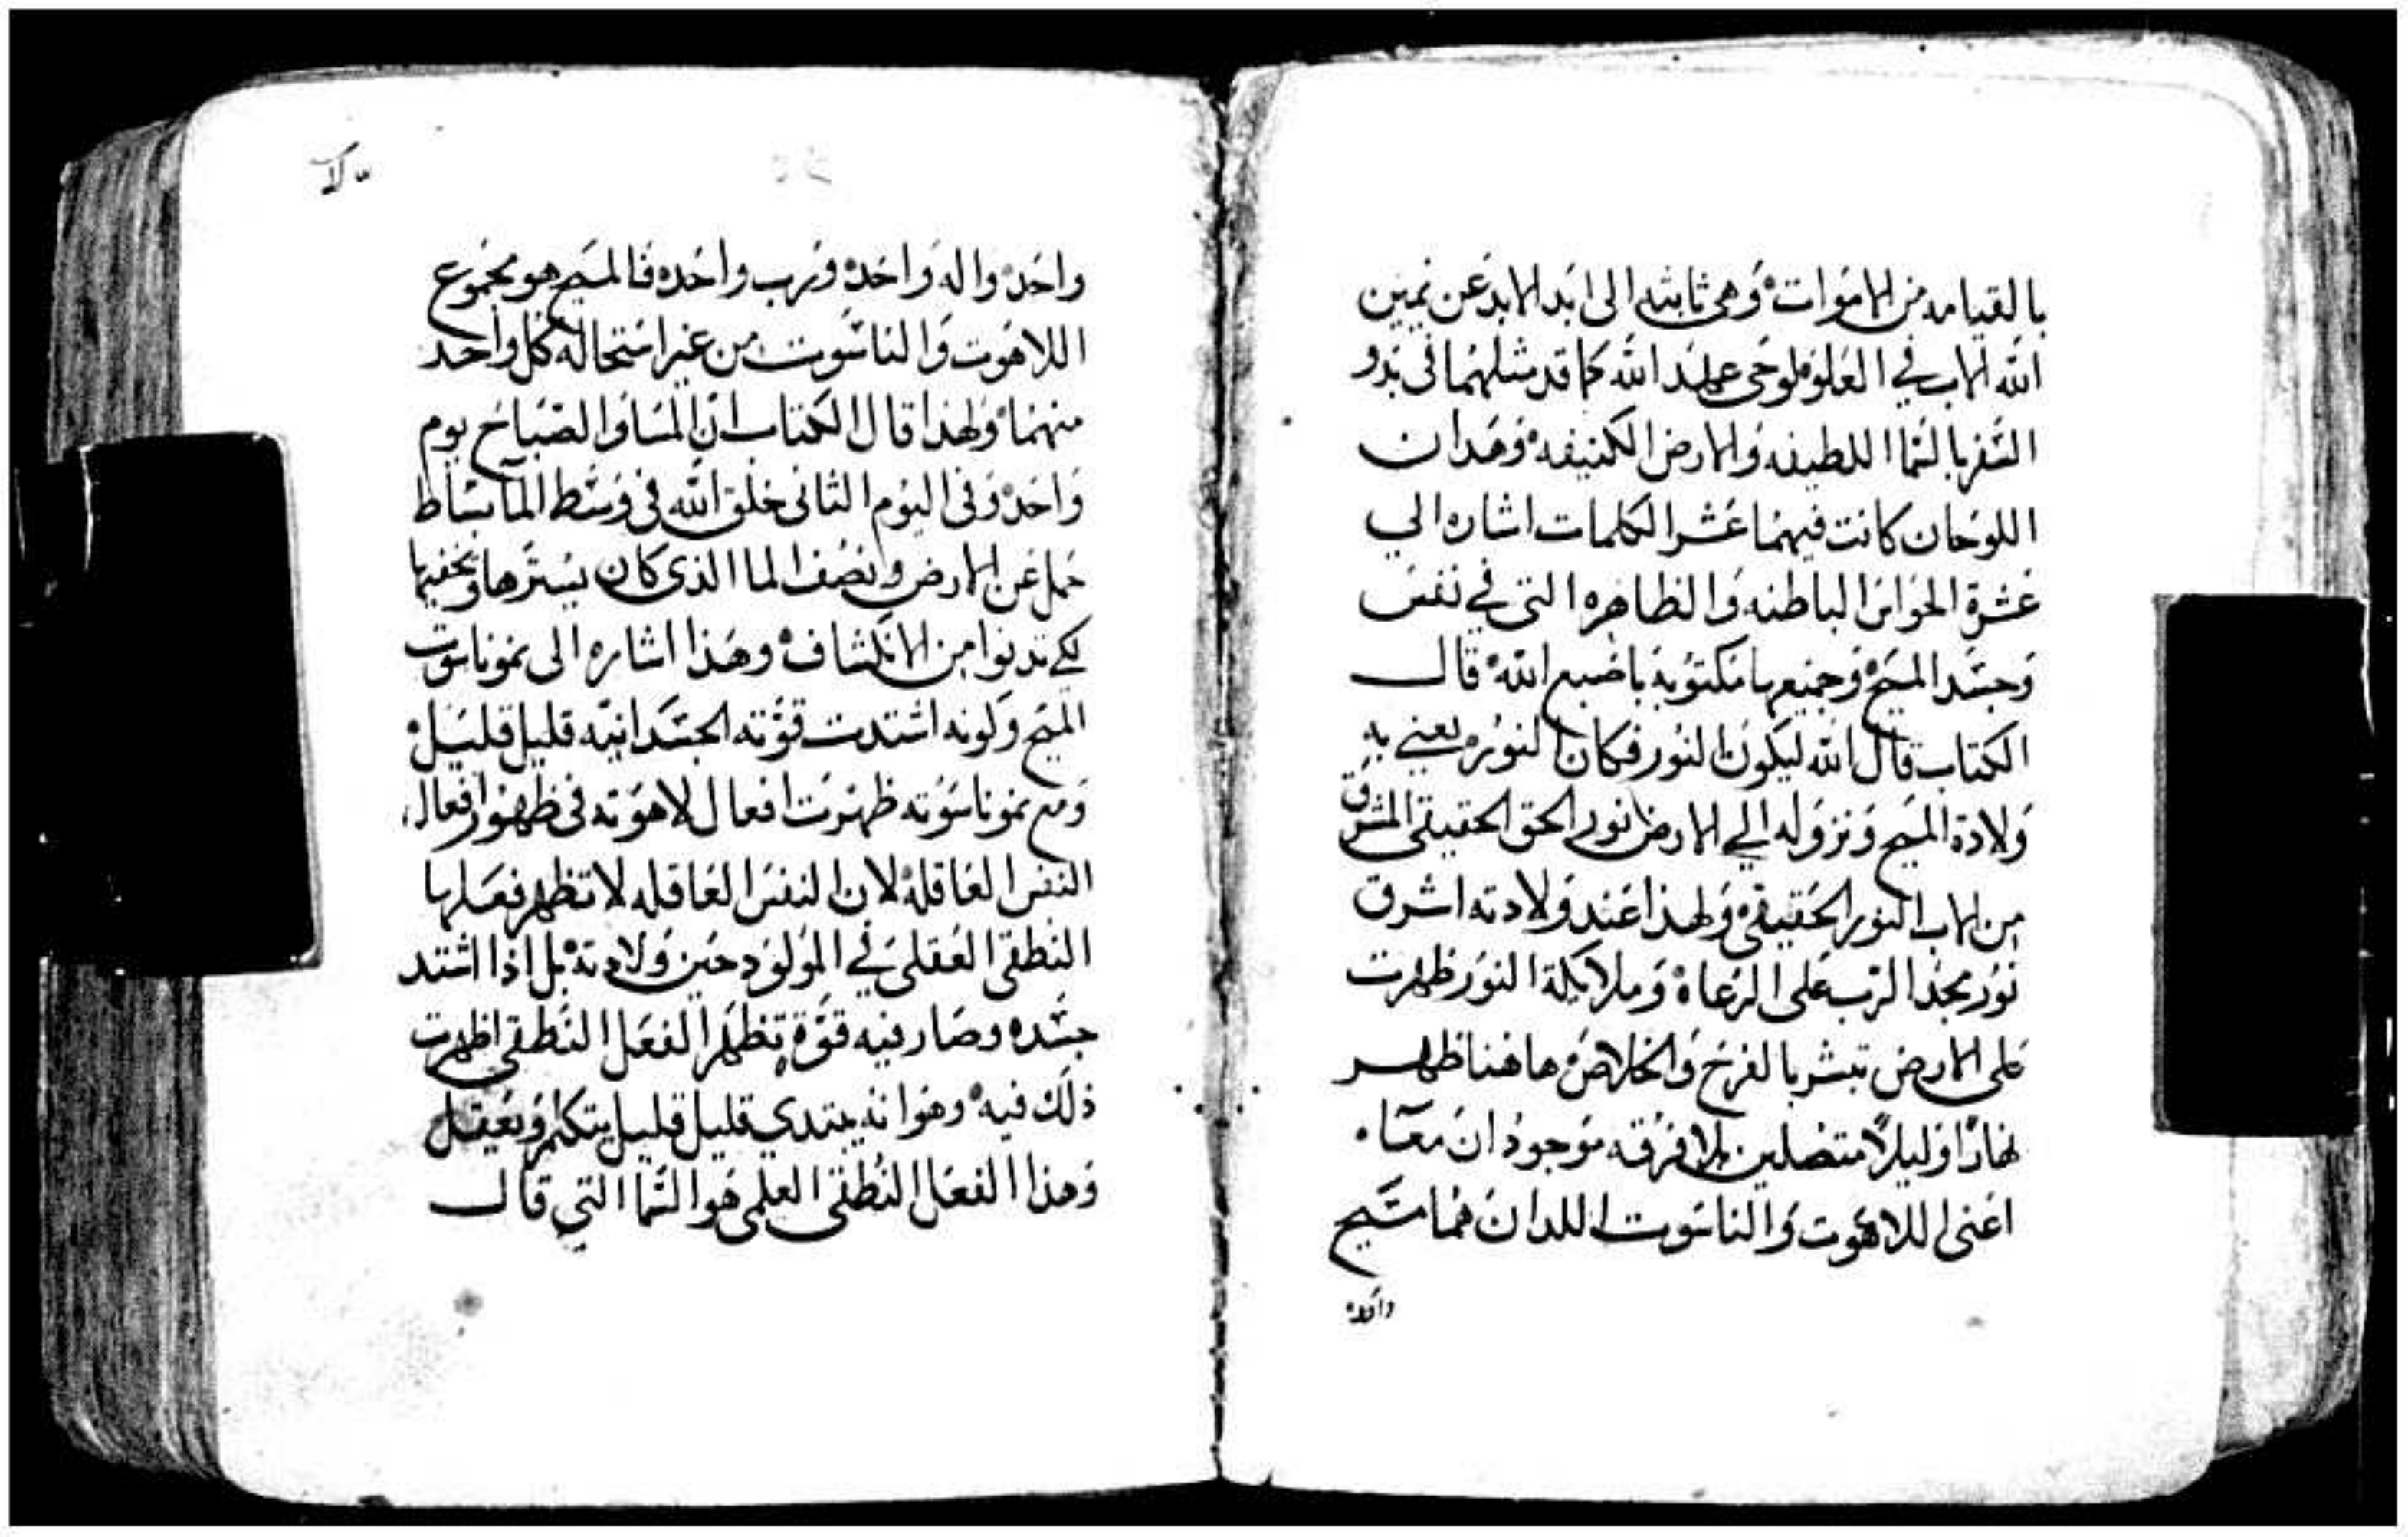 بالقيامه من الاموات وهي ثابته الى ابد الابد عن يمين
الله الاب في العلو فلوحى عهد الله كما قد مثلهما فى بدو
السفر بالسما اللطيفه والارض الكثيفه وهدان
اللوحان كانت فيهما عشر الكلمات اشاره الي
عشرة الحواس الباطنه والظاهره التى في نفس
وجسد المسيح وجميعها مكتوبة باصبع الله قال
الكتاب قال الله ليكون النور فكان النور يعني به
ولادة المسيح ونزوله الي الارض نور الحق الحقيقى المشرق
من الاب النور الحقيقى ولهذا عند ولادته اشرق
نور مجد الرب على الرعاه وملايكة النور ظهرت
على الارض تبشر بالفرح والخلاص هاهنا ظهر
نهارًا وليلاً متصلين بلا فرقه موجودان معًا
اعنى اللاهوت والناسوت اللدان هما مسيح
واحد
واحد واله واحد ورب واحد فالمسيح هو مجموع
اللاهوت والناسوت من غير استحالة كل واحد
منهما ولهذا قال الكتاب ان المسا والصباح يوم
واحد وفى اليوم الثانى خلق الله فى وسط المآ بساط
حمل عن الارض نصف الما الذى كان يسترها ويخفيها
لكى تدنوا من الانكشاف وهذا اشاره الى نمو ناسوت
المسيح وكونه اشتدت قوته الجسدانيه قليل قليل
ومع نمو ناسوته ظهرت افعال لاهوته فى ظهور افعال
النفس العاقلة لان النفس العاقله لا تظهر فعلها
النطقى العقلى في المولود حين ولادته بل اذا اشتد
جسده وصار فيه قوة تظهر الفعل النطقى اظهرت
ذلك فيه وهو انه يبتدي قليل قليل يتكلم ويعقل
وهذا الفعل النطقى العلمى هو السما التي قال